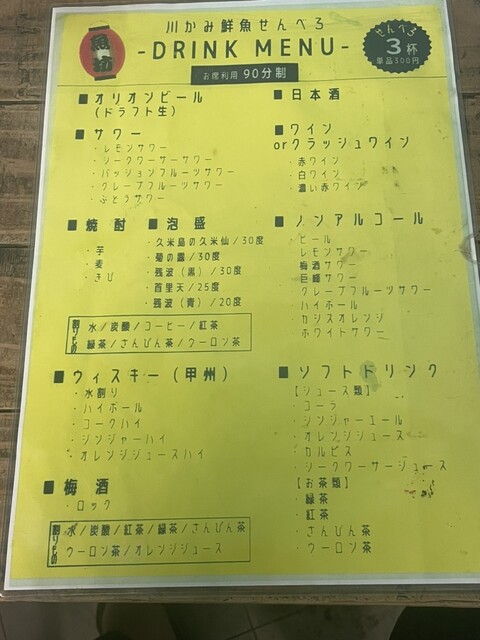 川かみ鮮魚せんべろ
-DRINK MENU-
お席利用 90分制
せんべろ
3杯
単品300円
■オリオンビール
(ドラフト生)
■サワー
・レモンサワー
・シークワーサーサワー
・パッションフルーツサワー
・グレープフルーツサワー
・ぶどうサワー
■焼酎
・芋
・麦
・きび
■泡盛
・久米島の久米仙/30度
・菊の露/30度
・残波(黒)/30度
・首里天/25度
・残波(青)/20度
割りもの
水/炭酸/コーヒー/紅茶
緑茶/さんぴん茶/ウーロン茶
■ウィスキー(甲州)
・水割り
・ハイボール
・コークハイ
・ジンジャーハイ
・オレンジジュースハイ
■梅酒
・ロック
割りもの
水/炭酸/紅茶/緑茶/さんぴん茶
ウーロン茶/オレンジジュース
■日本酒
■ワイン
orクラッシュワイン
・赤ワイン
・白ワイン
・濃い赤ワイン
■ノンアルコール
・ビール
・レモンサワー
・梅酒サワー
・巨峰サワー
・グレープフルーツサワー
・ハイボール
・カシスオレンジ
・ホワイトサワー
■ソフトドリンク
【ジュース類】
・コーラ
・ジンジャーエール
・オレンジジュース
・カルピス
・シークワーサージュース
【お茶類】
・緑茶
・紅茶
・さんぴん茶
・ウーロン茶